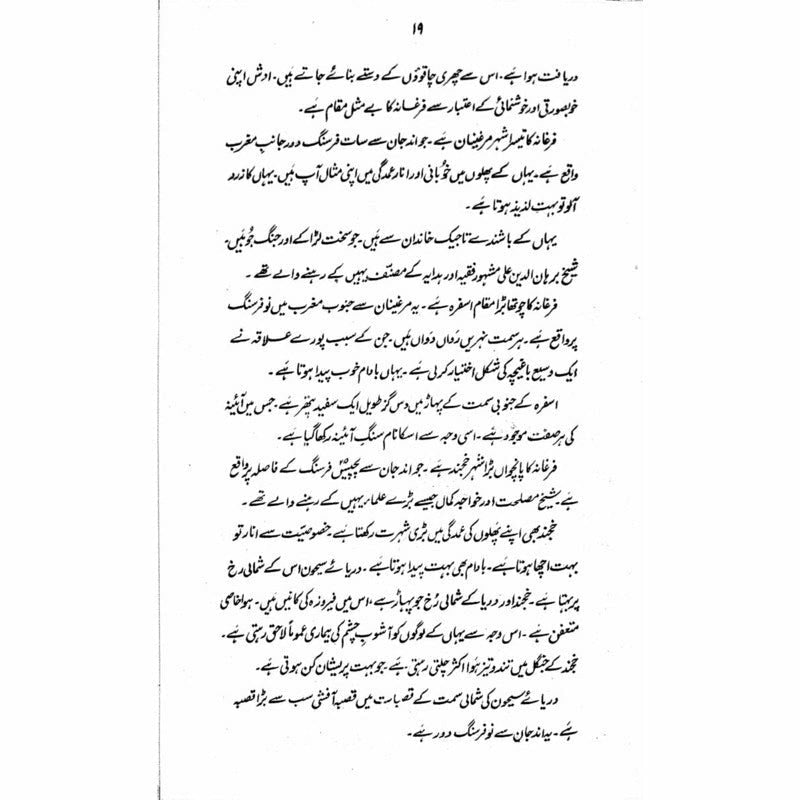 ۱۹
دریافت ہوا ہے۔ اس سے چھری چاقوؤں کے دستے بنائے جاتے ہیں۔ ادش اپنی
خوبصورتی اور خوشنمائی کے اعتبار سے فرغانہ کا بے مثل مقام ہے۔
فرغانہ کا تیسرا شہر مرغینان ہے۔ جو اندجان سے سات فرسنگ دور جانب مغرب
واقع ہے۔ یہاں کے پھلوں میں خوبانی اور انار عمدگی میں اپنی مثال آپ ہیں۔ یہاں کا زرد
آلو تو بہت لذیذ ہوتا ہے۔
یہاں کے باشندے تاجیک خاندان سے ہیں۔ جو سخت لڑاکے اور جنگ جُو ہیں۔
شیخ برہان الدین علی مشہور فقیہ اور ہدایہ کے مصنف یہیں کے رہنے والے تھے۔
فرغانہ کا چوتھا بڑا مقام اسفرہ ہے۔ یہ مرغینان سے جنوب مغرب میں نو فرسنگ
پر واقع ہے۔ ہر سمت نہریں رَواں دَواں ہیں۔ جن کے سبب پورے علاقہ نے
ایک وسیع باغیچہ کی شکل اختیار کر لی ہے۔ یہاں بادام خوب پیدا ہوتا ہے۔
اسفرہ کے جنوبی سمت کے پہاڑ میں دس گز طویل ایک سفید پتھر ہے۔ جس میں آئینہ
کی ہر صفت موجود ہے۔ اسی وجہ سے اسکا نام سنگِ آئینہ رکھا گیا ہے۔
فرغانہ کا پانچواں بڑا شہر خجند ہے۔ جو اندجان سے پچیس فرسنگ کے فاصلہ پر واقع
ہے۔ شیخ مصلحت اور خواجہ کمال جیسے بڑے علماء یہیں کے رہنے والے تھے۔
خجند بھی اپنے پھلوں کی عمدگی میں بڑی شہرت رکھتا ہے۔ خصوصیّت سے انار تو
بہت اچھا ہوتا ہے۔ بادام بھی بہت پیدا ہوتا ہے۔ دریائے سیحون اس کے شمالی رخ
پر بہتا ہے۔ خجند اور دریا کے شمالی رُخ جو پہاڑ ہے، اس میں فیروزہ کی کانیں ہیں۔ ہوا خاصی
متعفن ہے۔ اس وجہ سے یہاں کے لوگوں کو آشوبِ چشم کی بیماری عموماً لاحق رہتی ہے۔
خجند کے جنگل میں تند و تیز ہَوا اکثر چلتی رہتی ہے۔ جو بہت پریشان کن ہوتی ہے۔
دریائے سیحون کی شمالی سمت کے قصبات میں قصبہ آفشی سب سے بڑا قصبہ
ہے۔ یہ اندجان سے نو فرسنگ دور ہے۔